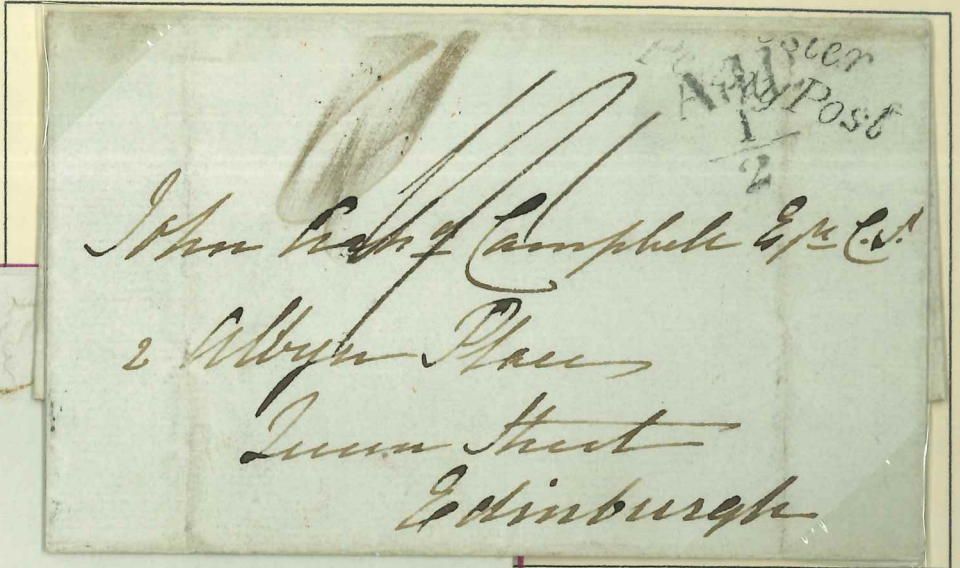 Penny Post
Add
1/2
John Campbell Esqr C.S.
2 Albyn Place
Queen Street
Edinburgh